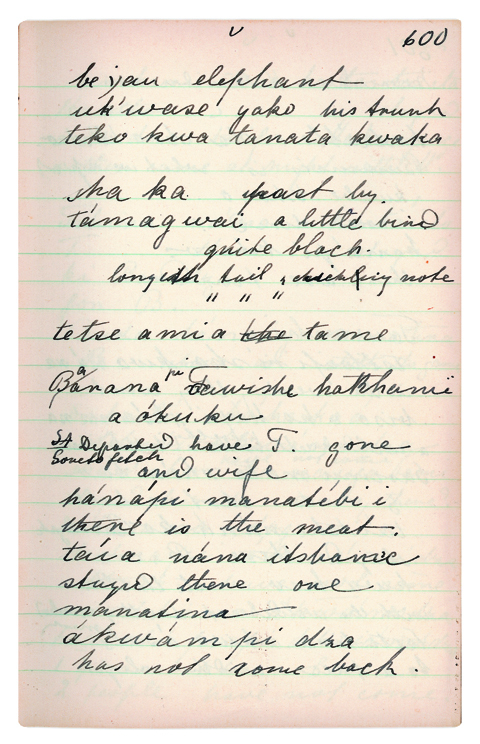 600
be yau elephant
uk'wase yako his trunk
teko kwa tanata kwaka
ska ka past by.
támagwaï a little bird
quite black.
longish tail, chuckling note
" " "
tetse amia the tame
Bánana tawishe hatkhamï
a ókuku
Departed have T. gone
to fetch
and wife
hánápi manatébi i
there is the meat.
taia nána itshanxe
stayed there one
manatina
ákwám pi dza
has not come back.